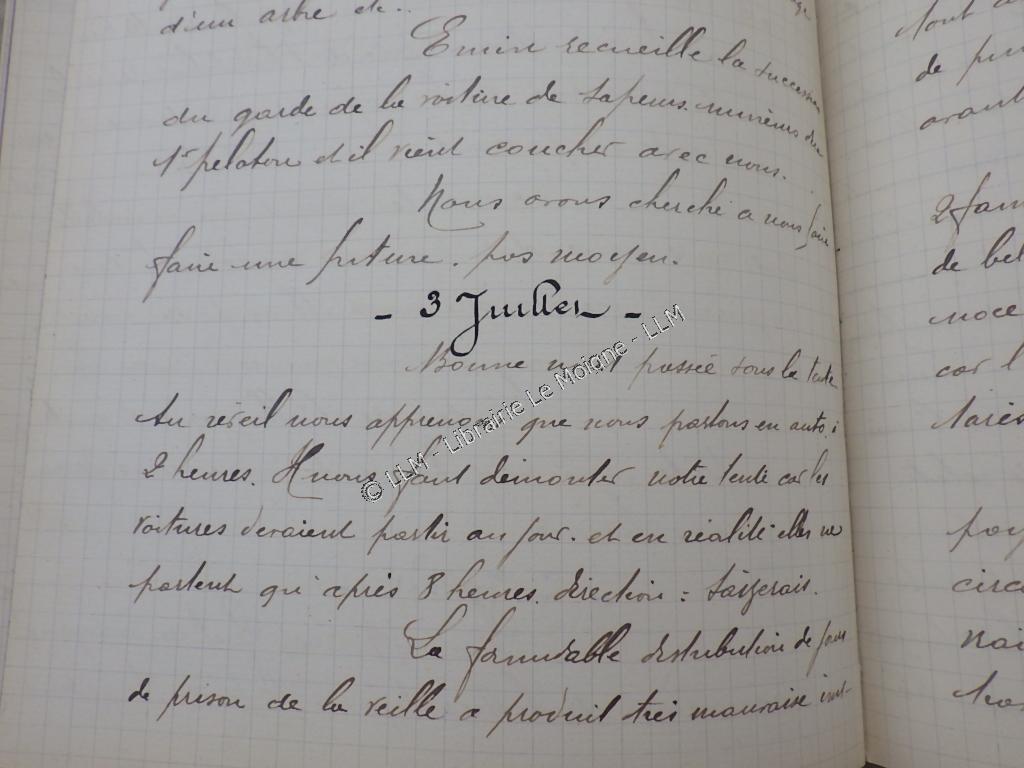 d'un arbre etc..
Emin recueille la succession
du garde de la voiture de sapeurs-mineurs du
1er peloton et il vient coucher avec nous.
Nous avons cherché a nous faire
faire une friture. pas moyen.
- 3 Juillet -
Bonne nuit passée sous la tente
Au réveil nous apprenons que nous partons en auto à
2 heures. Il nous faut démonter notre tente car les
voitures devaient partir au jour. et en réalité elles ne
partent qu'après 8 heures. direction :
La formidable distribution de jours
de prison de la veille a produit très mauvaise im-
tout
de
avant
2
de bel
noce
car l
© LLM - Librairie Le Moigne - LLM